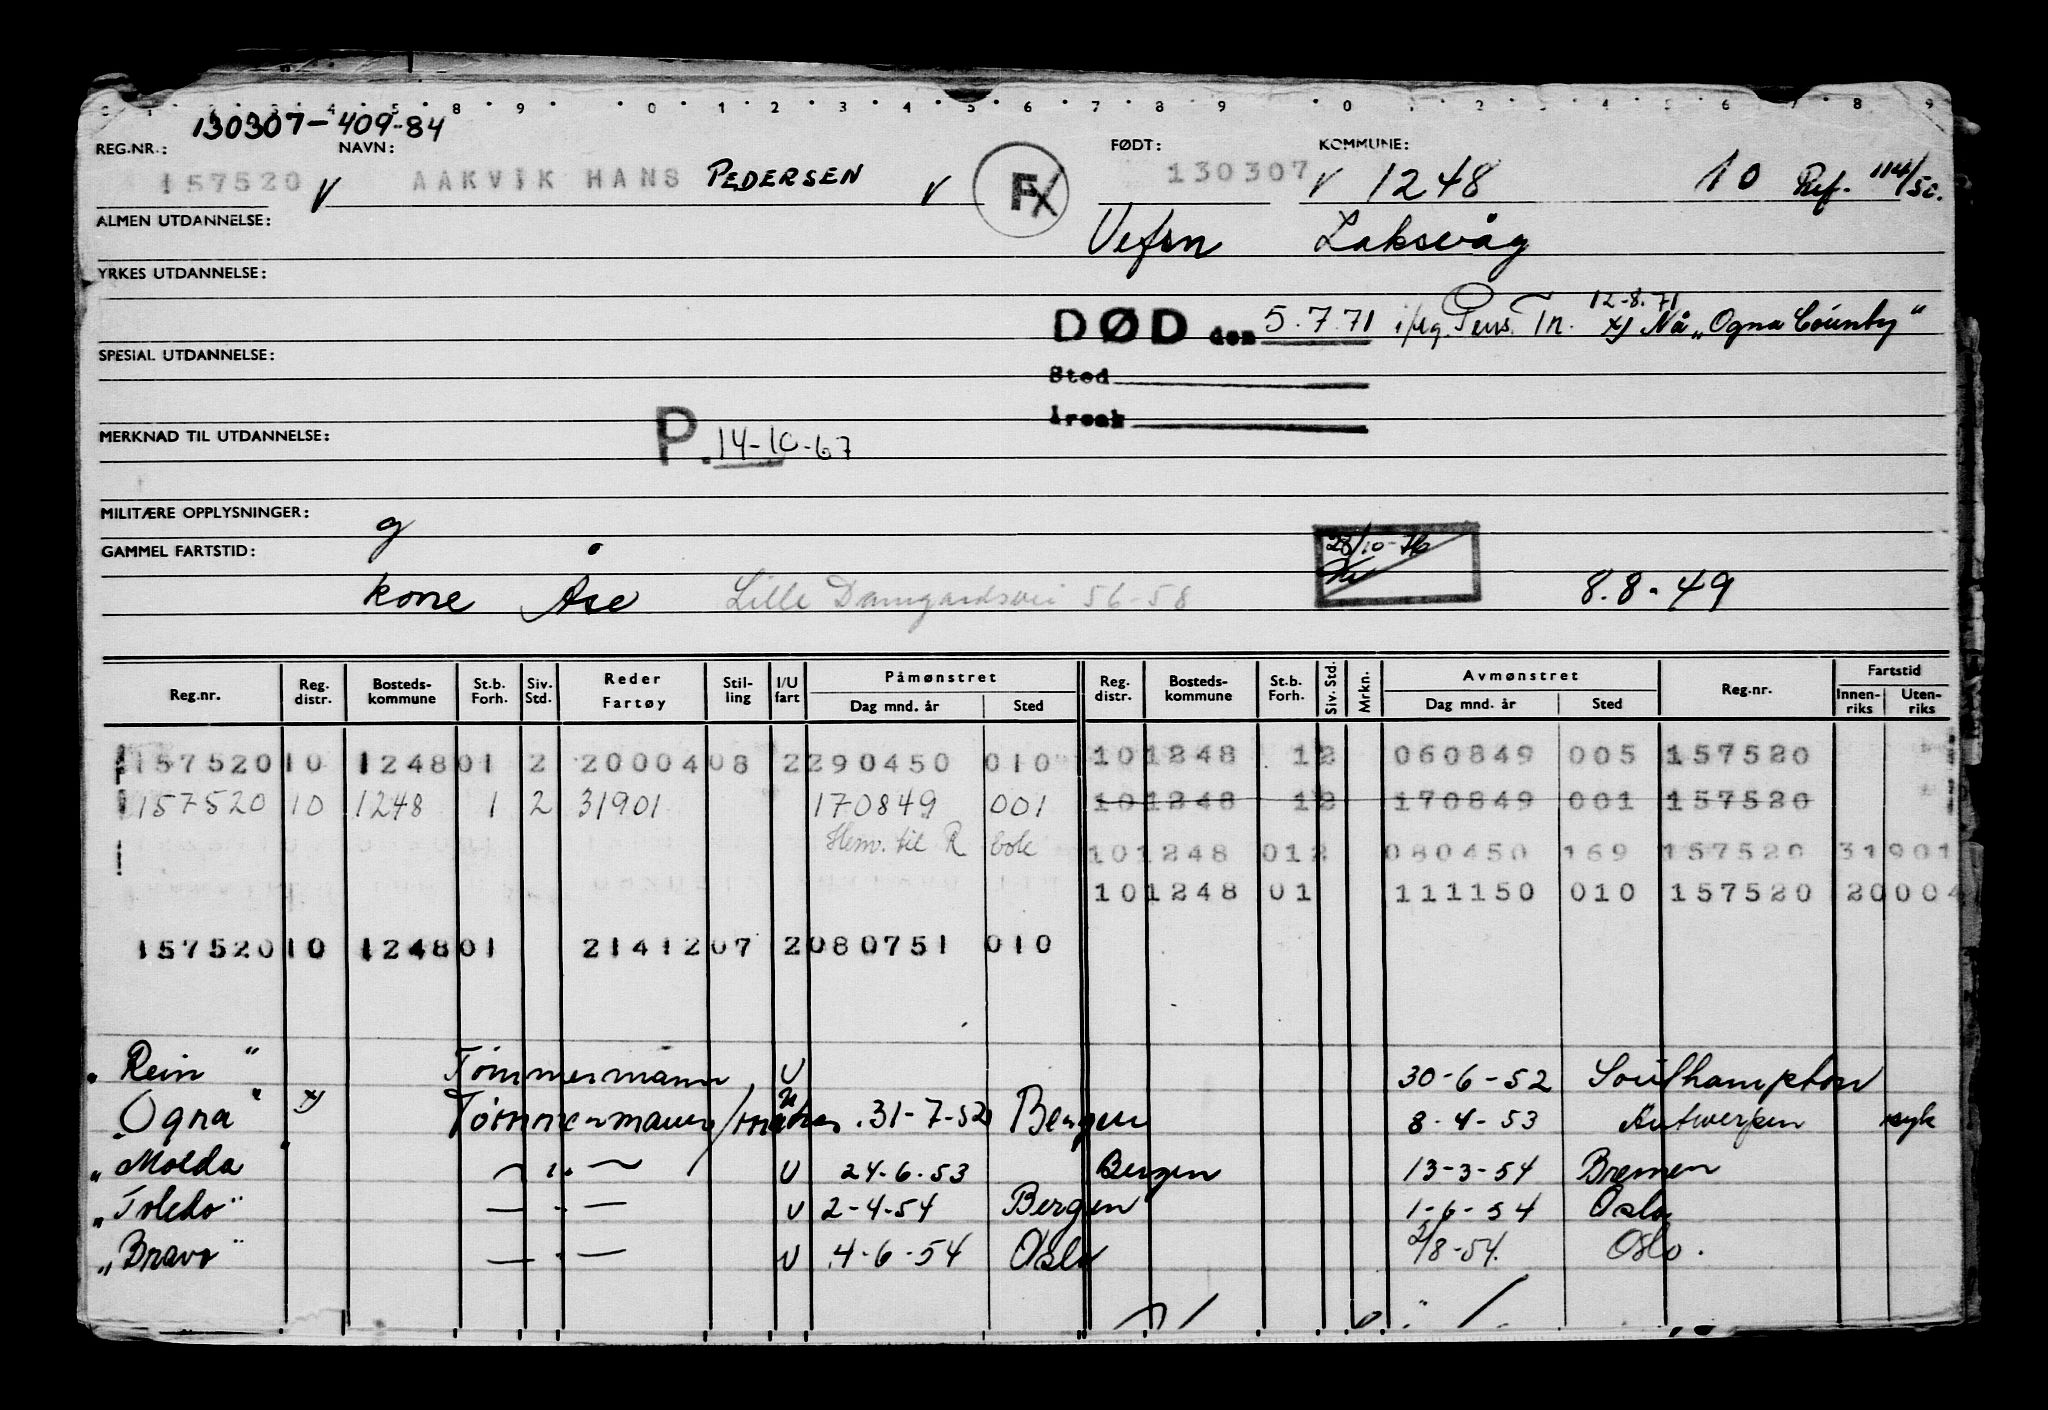 130307-409-84
REG.NR.: NAVN: FØDT: KOMMUNE:
157520 V AAKVIK HANS PEDERSEN V F 130307 V 1248 10 Ref. 114/50.
ALMEN UTDANNELSE: Vefsn Laksvåg
YRKES UTDANNELSE:
12-8.71
DØD den 5.7.71 i/flg. Pens. Tr. x) Nå "Ogna County"
SPESIAL UTDANNELSE:
Sted
Årsak
MERKNAD TIL UTDANNELSE: P. 14-10-67
MILITÆRE OPPLYSNINGER: g
GAMMEL FARTSTID: 28/10-76
kone Åse Lille Damgardsvei 56-58 8.8.-49
Påmønstret Avmønstret Fartstid
Reg.nr. Reg. distr. Bosteds- kommune St.b. Forh. Siv. Std. Reder Fartøy Stil- ling I/U fart Dag mnd. år Sted Reg. distr. Bosteds- kommune St.b. Forh. Siv. Std. Mrkn. Dag mnd. år Sted Reg.nr. Innen- riks Uten- riks
157520 10 1248 01 2 20004 08 2 290450 010 10 1248 1 2 060849 005 157520
157520 10 1248 1 2 31901 170849 001 10 1248 1 2 170849 001 157520
Hem. til R bok 10 1248 01 2 080450 169 157520 31901
10 1248 01 111150 010 157520 20004
157520 10 1248 01 21412 07 2 080751 010
"Rein" Tømmermann U 30-6-52 Southampton
"Ogna" x) Tømmermann/matros U 31-7-52 Bergen 8-4-53 Antwerpen syk
"Molda" — " — U 24-6-53 Bergen 13-3-54 Bremen
"Toledo" — " — U 2-4-54 Bergen 1-6-54 Oslo
"Bravo" — " — U 4-6-54 Oslo 2/8-54. Oslo.